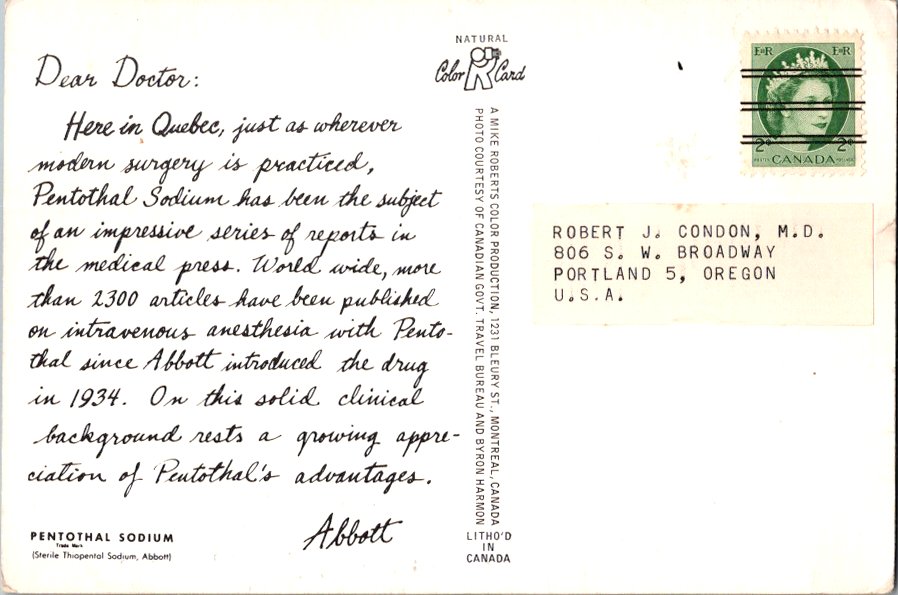 Dear Doctor:
Here in Quebec, just as wherever
modern surgery is practiced,
Pentothal Sodium has been the subject
of an impressive series of reports in
the medical press. World wide, more
than 2300 articles have been published
on intravenous anesthesia with Pento-
thal since Abbott introduced the drug
in 1934. On this solid clinical
background rests a growing appre-
ciation of Pentothal's advantages.
Abbott
PENTOTHAL SODIUM
Trade Mark
(Sterile Thiopental Sodium, Abbott)
NATURAL
Color Card
A MIKE ROBERTS COLOR PRODUCTION, 1231 BLEURY ST., MONTREAL, CANADA
PHOTO COURTESY OF CANADIAN GOVT. TRAVEL BUREAU AND BYRON HARMON
LITHO'D
IN
CANADA
E R E R
2¢ 2¢
POSTES CANADA POSTAGE
ROBERT J. CONDON, M.D.
806 S. W. BROADWAY
PORTLAND 5, OREGON
U.S.A.